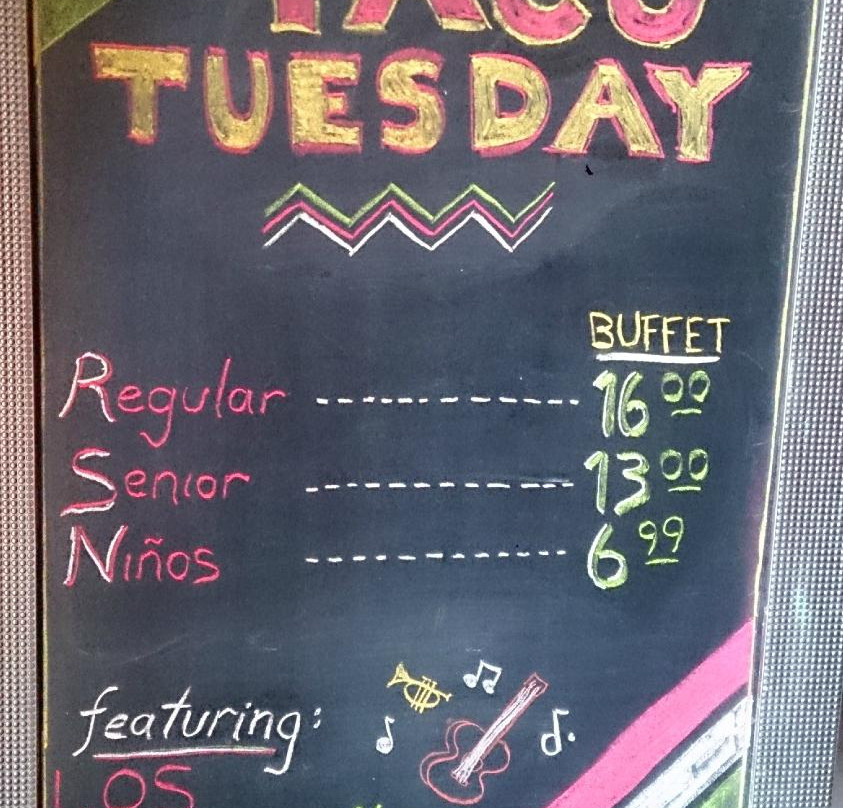 TACO
TUESDAY
BUFFET
Regular ------------- 16 00
Senior ------------- 13 00
Niños ------------- 6 99
featuring:
LOS